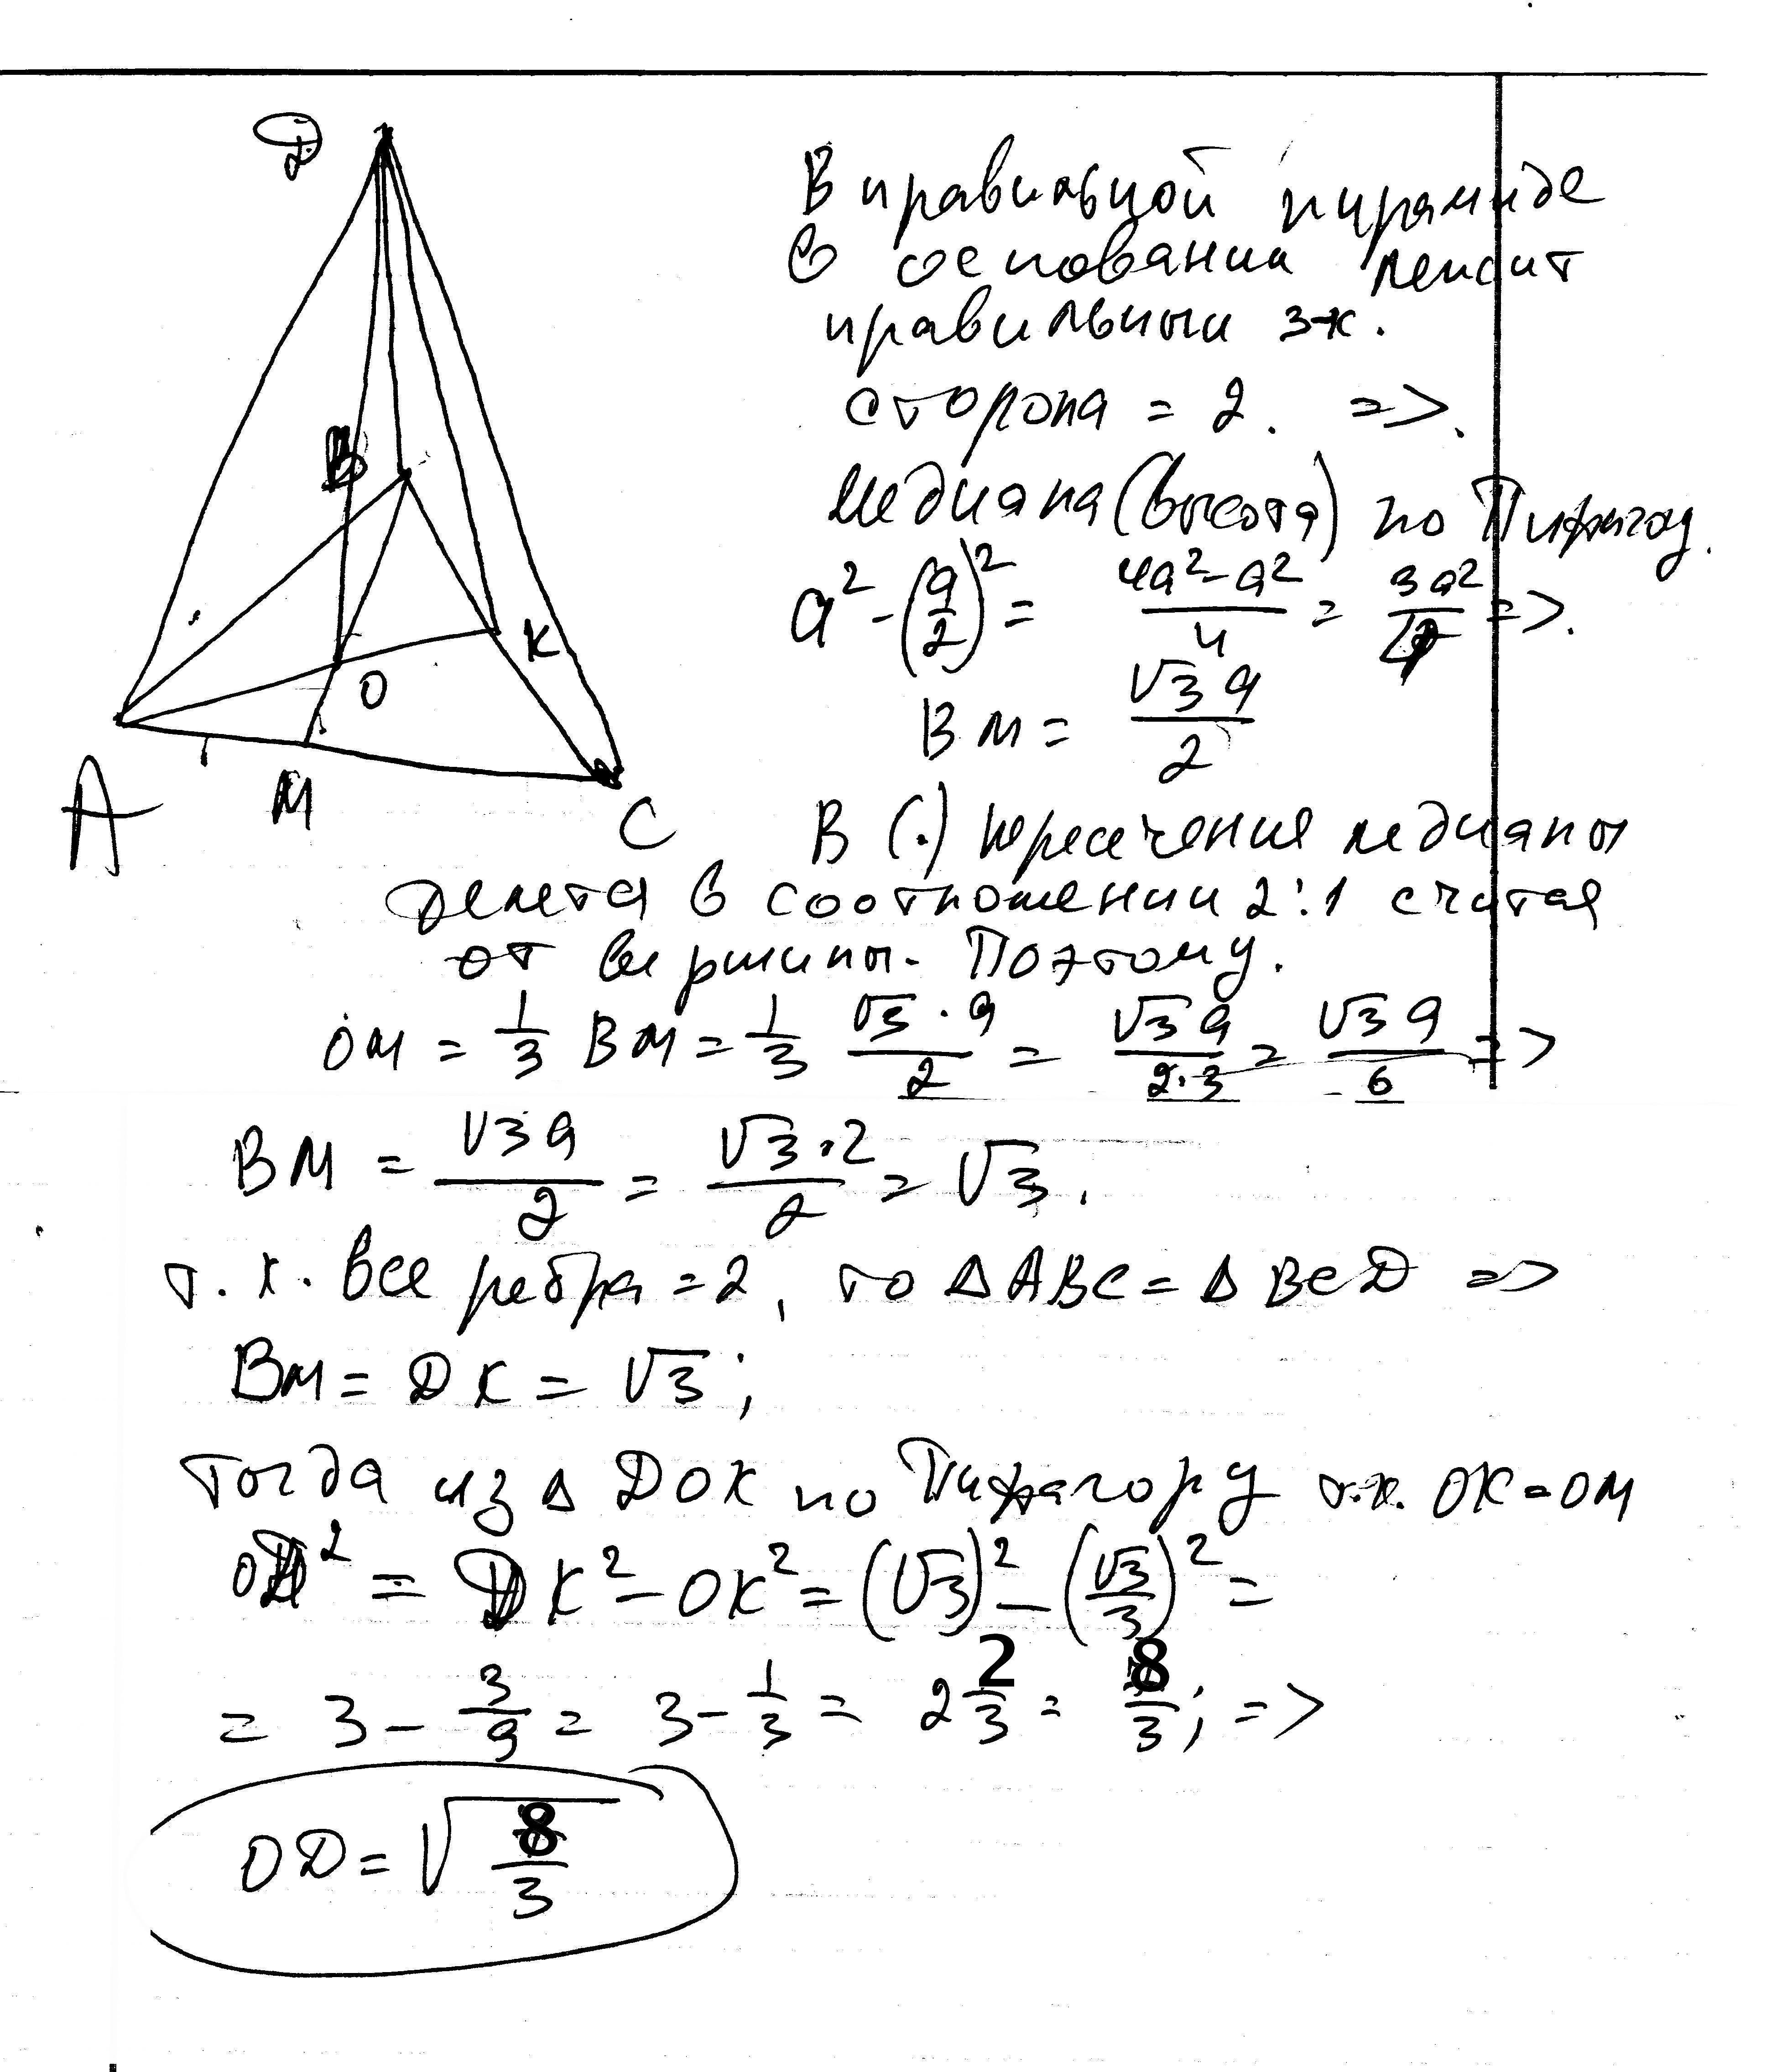 Д
В
О
К
А
М
С
В правильной пирамиде
в основании лежит
правильный 3-к.
сторона = 2. =>.
Медиана (высота) по Пифагор.
a² - (a/2)² = (4a² - a²)/4 = 3a²/4 =>.
ВМ = √3a/2
В (.) пересечения медианы
делятся в соотношении 2:1 считая
от вершины. Поэтому.
ОМ = 1/3 ВМ = 1/3 √3·a/2 = √3a/2·3 = √3a/6 =>
ВМ = √3a/2 = √3·2/2 = √3.
т.к. все ребра = 2, то ΔАВС = ΔВСД =>
ВМ = ДК = √3;
Тогда из Δ ДОК по Пифагору т.к. ОК = ОМ
ОД² = ДК² - ОК² = (√3)² - (√3/3)² =
= 3 - 3/9 = 3 - 1/3 = 2 2/3 = 8/3; =>
ОД = √8/3